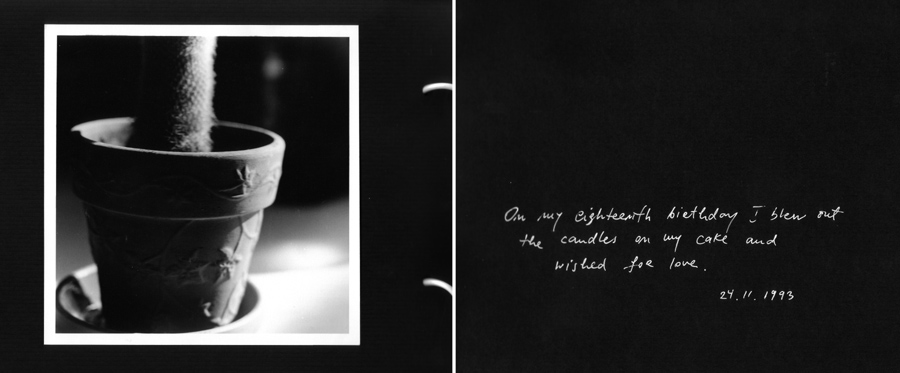 On my eighteenth birthday I blew out
the candles on my cake and
wished for love.
24.11.1993